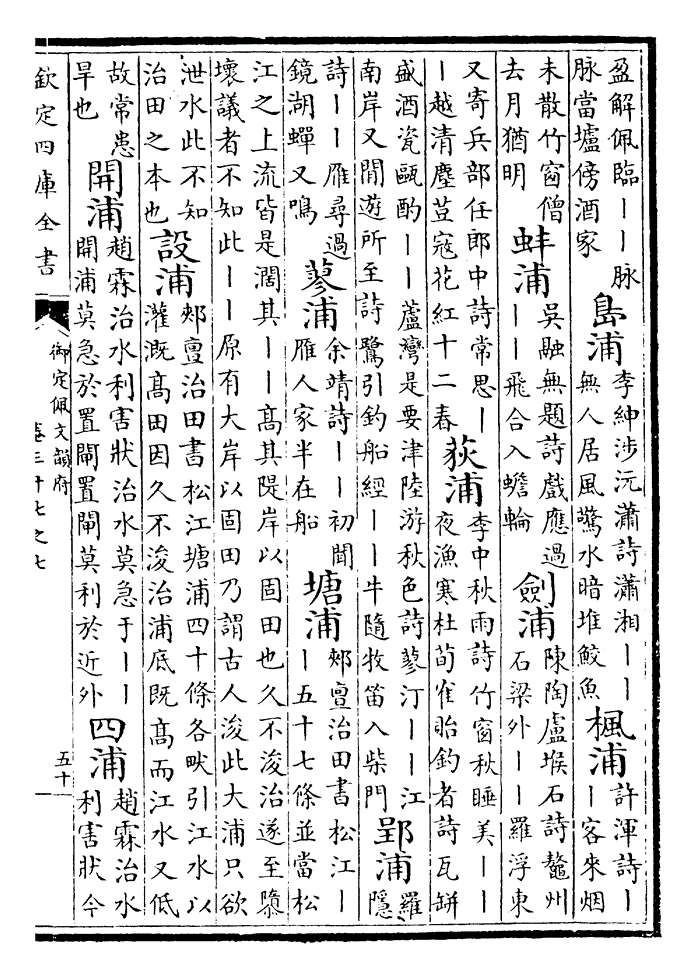 盈解佩臨丨丨脉
脉當壚傍酒家
島浦
李紳涉沅瀟詩瀟湘丨丨
無人居風驚水暗堆鮫魚
楓浦
許渾詩丨
丨客來烟
未散竹窗僧
去月猶明
蚌浦
吳融無題詩戲應過
丨丨飛合入蟾輪
劍浦
陳陶盧堠石詩鼇州
石梁外丨丨羅浮東
又寄兵部任郎中詩常思丨
丨越清塵荳寇花紅十二春
荻浦
李中秋雨詩竹窗秋睡美丨丨
夜漁寒杜荀雀貽釣者詩瓦缾
盛酒瓷甌酌丨丨蘆灣是要津陸游秋色詩蓼汀丨丨江
南岸又閒遊所至詩鷺引釣船經丨丨牛隨牧笛入柴門
郢浦
羅
隱
詩丨丨雁尋過
鏡湖蟬又鳴
蓼浦
余靖詩丨丨初聞
雁人家半在船
塘浦
郟亶治田書松江丨
丨五十七條並當松
江之上流皆是濶其丨丨高其隄岸以固田也久不浚治遂至隳
壞議者不知此丨丨原有大岸以固田乃謂古人浚此大浦只欲
泄水此不知
治田之本也
設浦
郟亶治田書松江塘浦四十條各畎引江水以
灌溉高田因久不浚治浦底既高而江水又低
故常患
旱也
開浦
趙霖治水利害狀治水莫急于丨丨
開浦莫急於置閘置閘莫利於近外
四浦
趙霖治水
利害狀今
欽定四庫全書
御定佩文韻府
卷三十七之七
五十